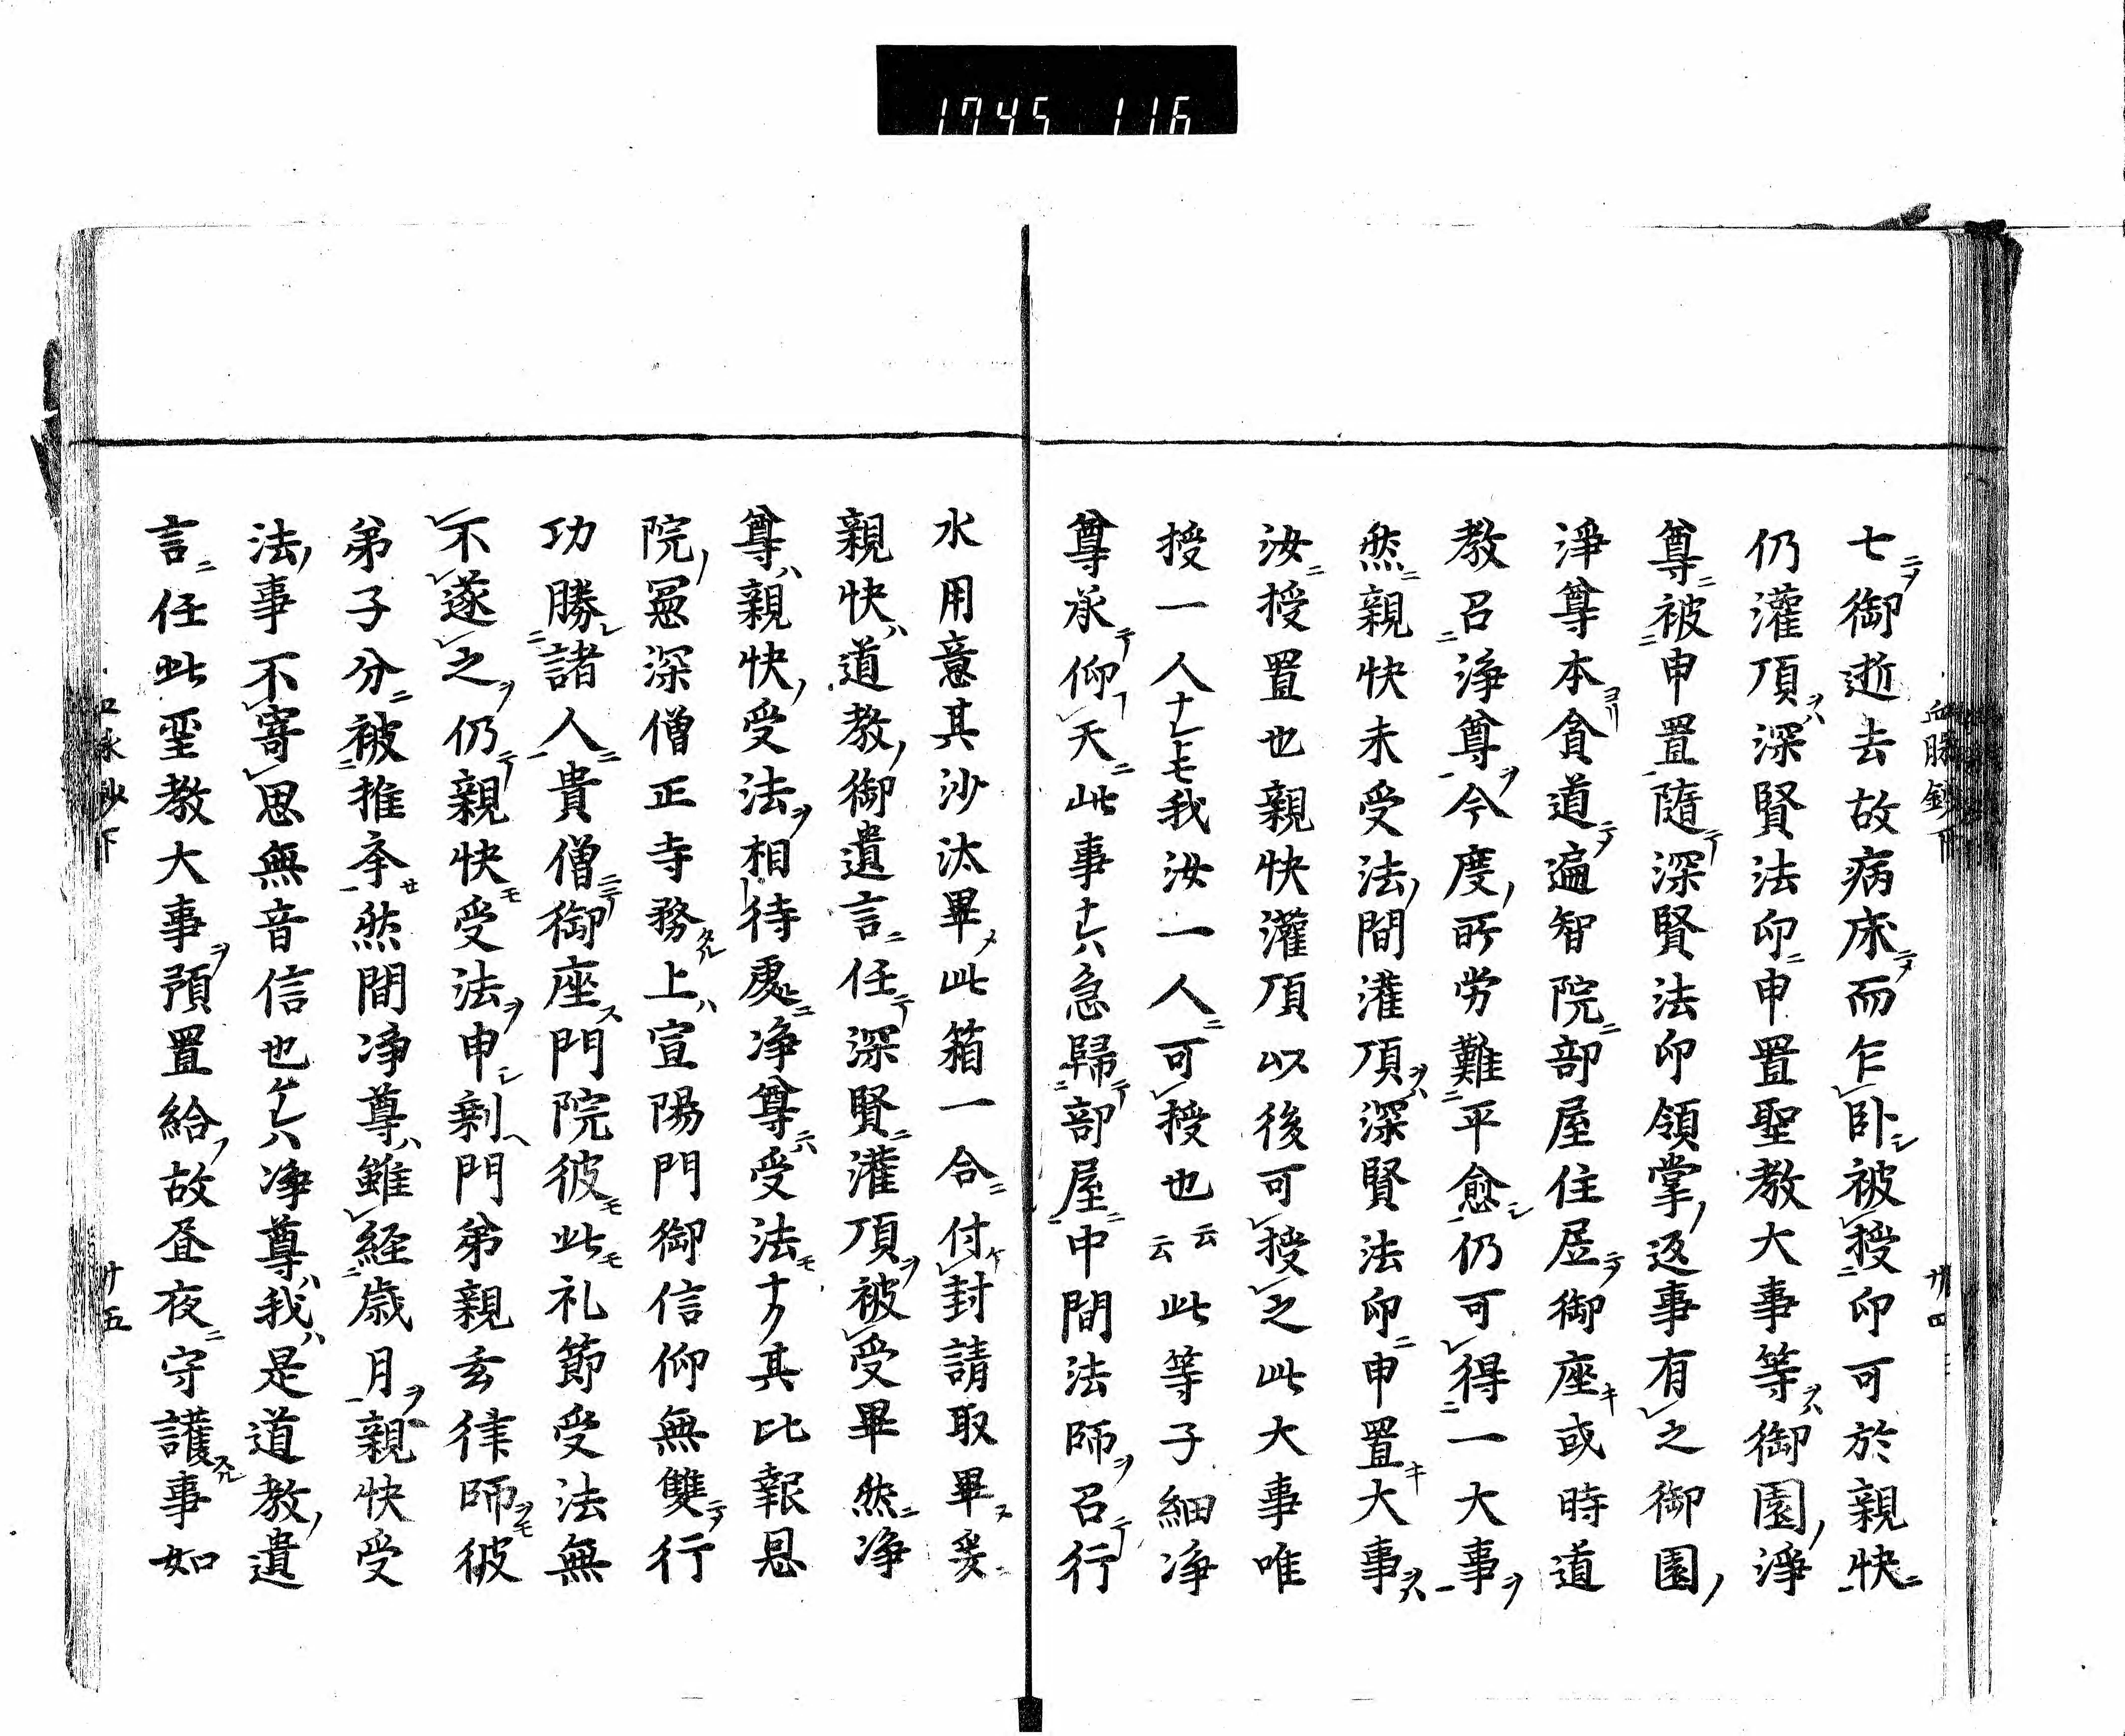 1745 116
七御逝去故病床而乍臥被授印可於親快
仍灌頂深賢法印申置聖教大事等御園淨
尊被申置隨深賢法印領掌返事有之御園
淨尊本貪道遍智院部屋住居御座或時道
教召淨尊今度所労難平愈仍可得一大事
然親快未受法間灌頂深賢法印申置大事
汝授置也親快灌頂以後可授之此大事唯
授一人ナレトモ我汝一人可授也云云此等子細淨
尊承仰天此事ナレハ急歸部屋中間法師召行
水用意其沙汰畢此箱一合付封請取畢爰
親快道教御遺言任深賢灌頂被受畢然淨
尊親快受法相待處淨尊受法ナク其比報恩
院冨深僧正寺務上宣陽門御信仰無雙行
功勝諸人貴僧御座門院彼此礼節受法無
不遂之仍親快受法申剩門弟親玄律師彼
弟子分被推參然間淨尊雖経歳月親快受
法事不寄思無音信也ケレハ淨尊我是道教遺
言任此聖教大事預置給故昼夜守護事如
血脉鈔下
廿四
血脉鈔下
廿五